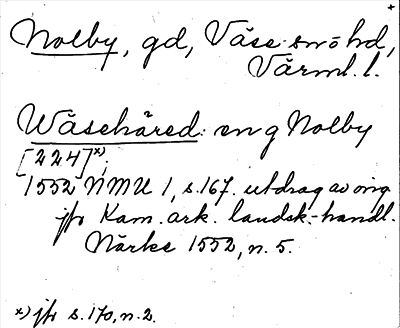 Nolby, gd, Väse sn o hd,
Värml. l.
Wäsehäred: en g Nolby
[224]x)
1552 NMU 1, s. 167. utdrag av orig
jfr Kam. ark. landsk.-handl.
Närke 1552, n. 5.
x) jfr s. 170, n. 2.